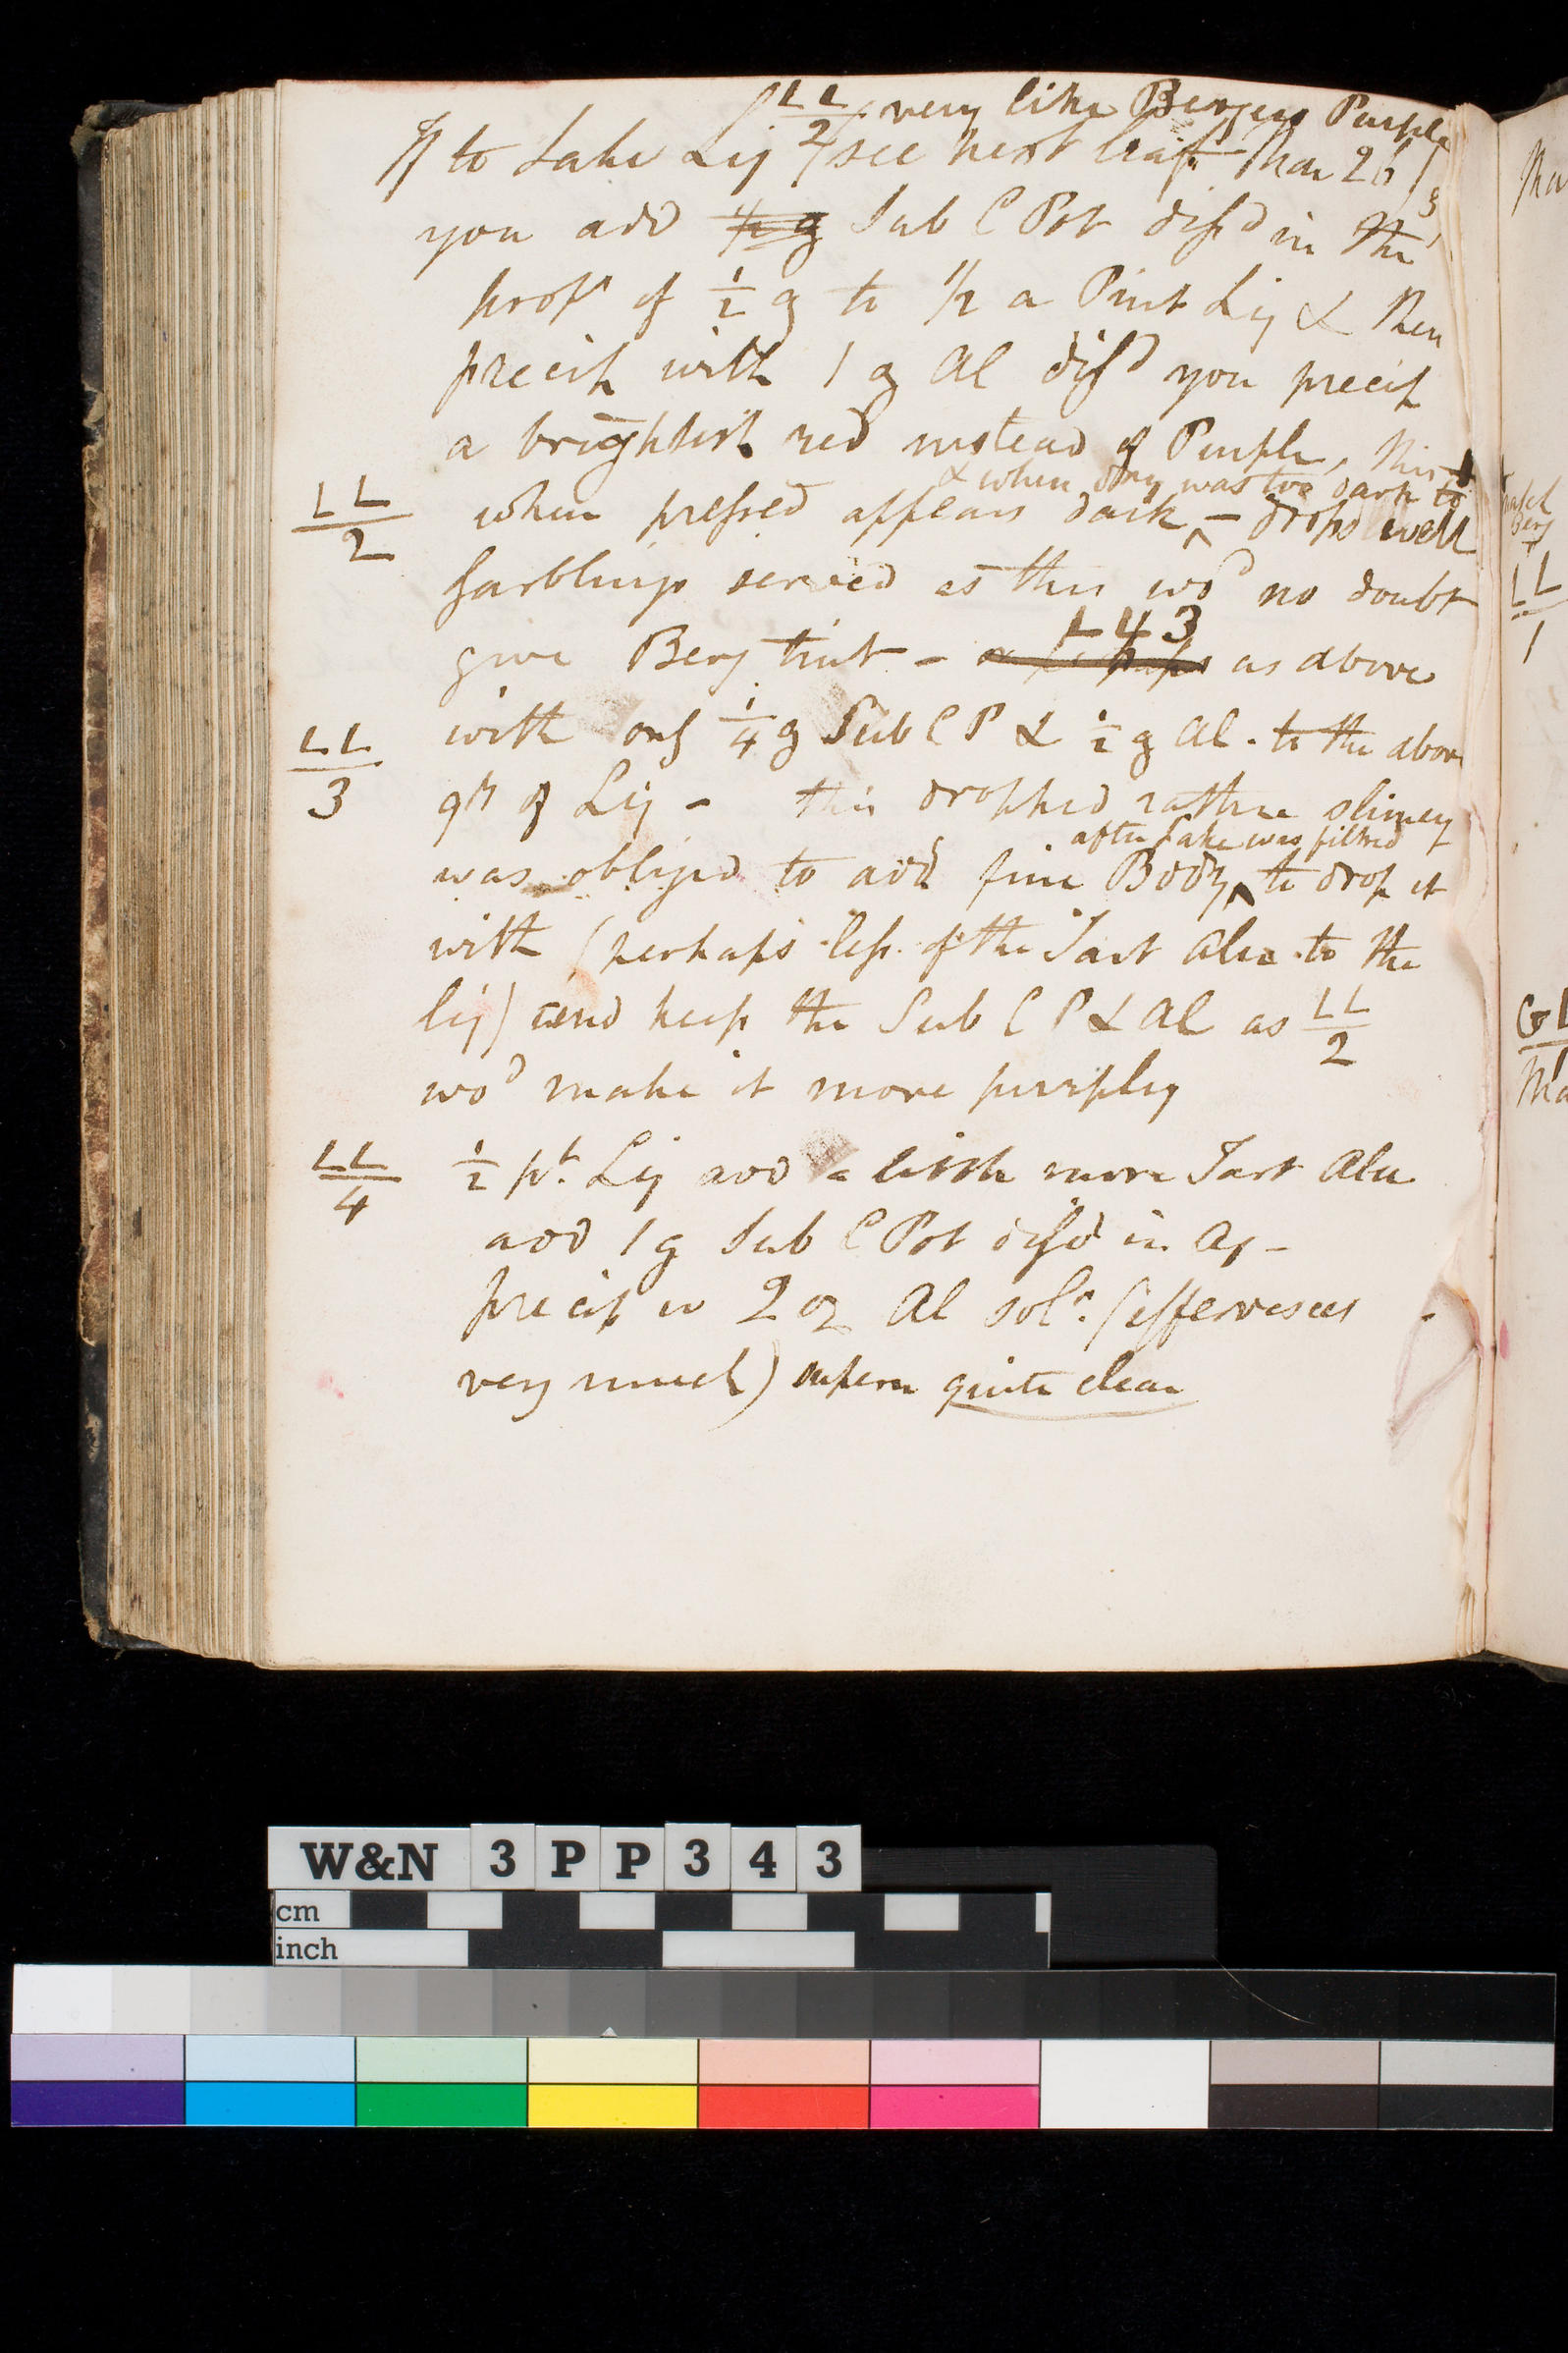 LL/2 very like Bergers Purple
If to Lake Liq (see next leaf Mar 26/3)
you add ½ g Sub C Pot diss'd in the
prop^n of ½ g to ½ a Pint Liq & then
precip with 1 g Al diss^d you precip
a brightish red instead of Purple, this
& when dry was too dark to
LL/2 when pressed appears dark ^ – drops well
Garblings served as this wo^d no doubt
L43
give Berg tint – as above
LL/3 with only ¼ g Sub C P & ½ g Al. to the above
q^ty of Liq – this dropped rather slimey
after Lake was filtred
was obliged to add fine Body ^ to drop it
with (perhaps less of the Tart Alu to the
liq) and keep the Sub C P & Al as LL/2
wo^d make it more purpley
LL/4 ½ p^t. Liq add a little more Tart Alu
add 1 g Sub C Pot diss^d in Aq –
precip w 2 oz Al sol^n. (effervesces
very much) supern quite clear
Ma
Berg
LL/1
GL
Ma
W&N 3PP343
cm
inch